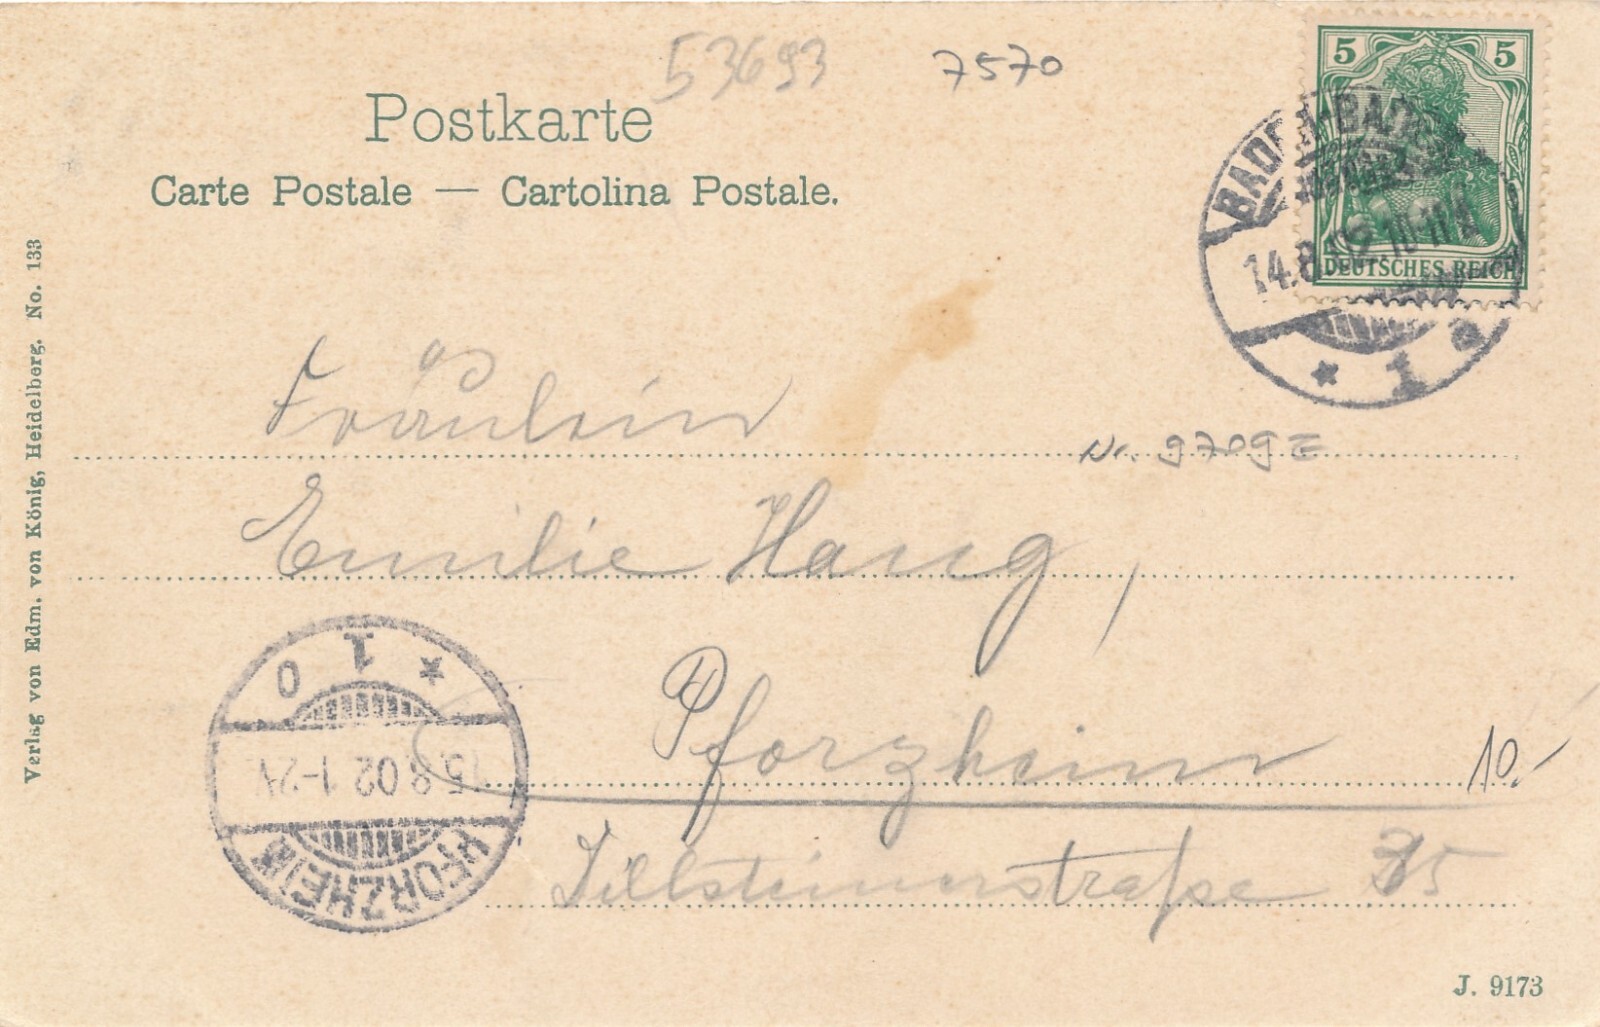 53693 7570
Postkarte
Carte Postale — Cartolina Postale.
5 5
DEUTSCHES REICH
BADEN-BADEN
14.8.02 10-11V
* 1 a
Verlag von Edm. von König, Heidelberg. No. 133
Fräulein
Nr. 9709
Emilie Haug,
Pforzheim
10.-
PFORZHEIM
15.8.02 1-2V
* 1 0
J. 9173